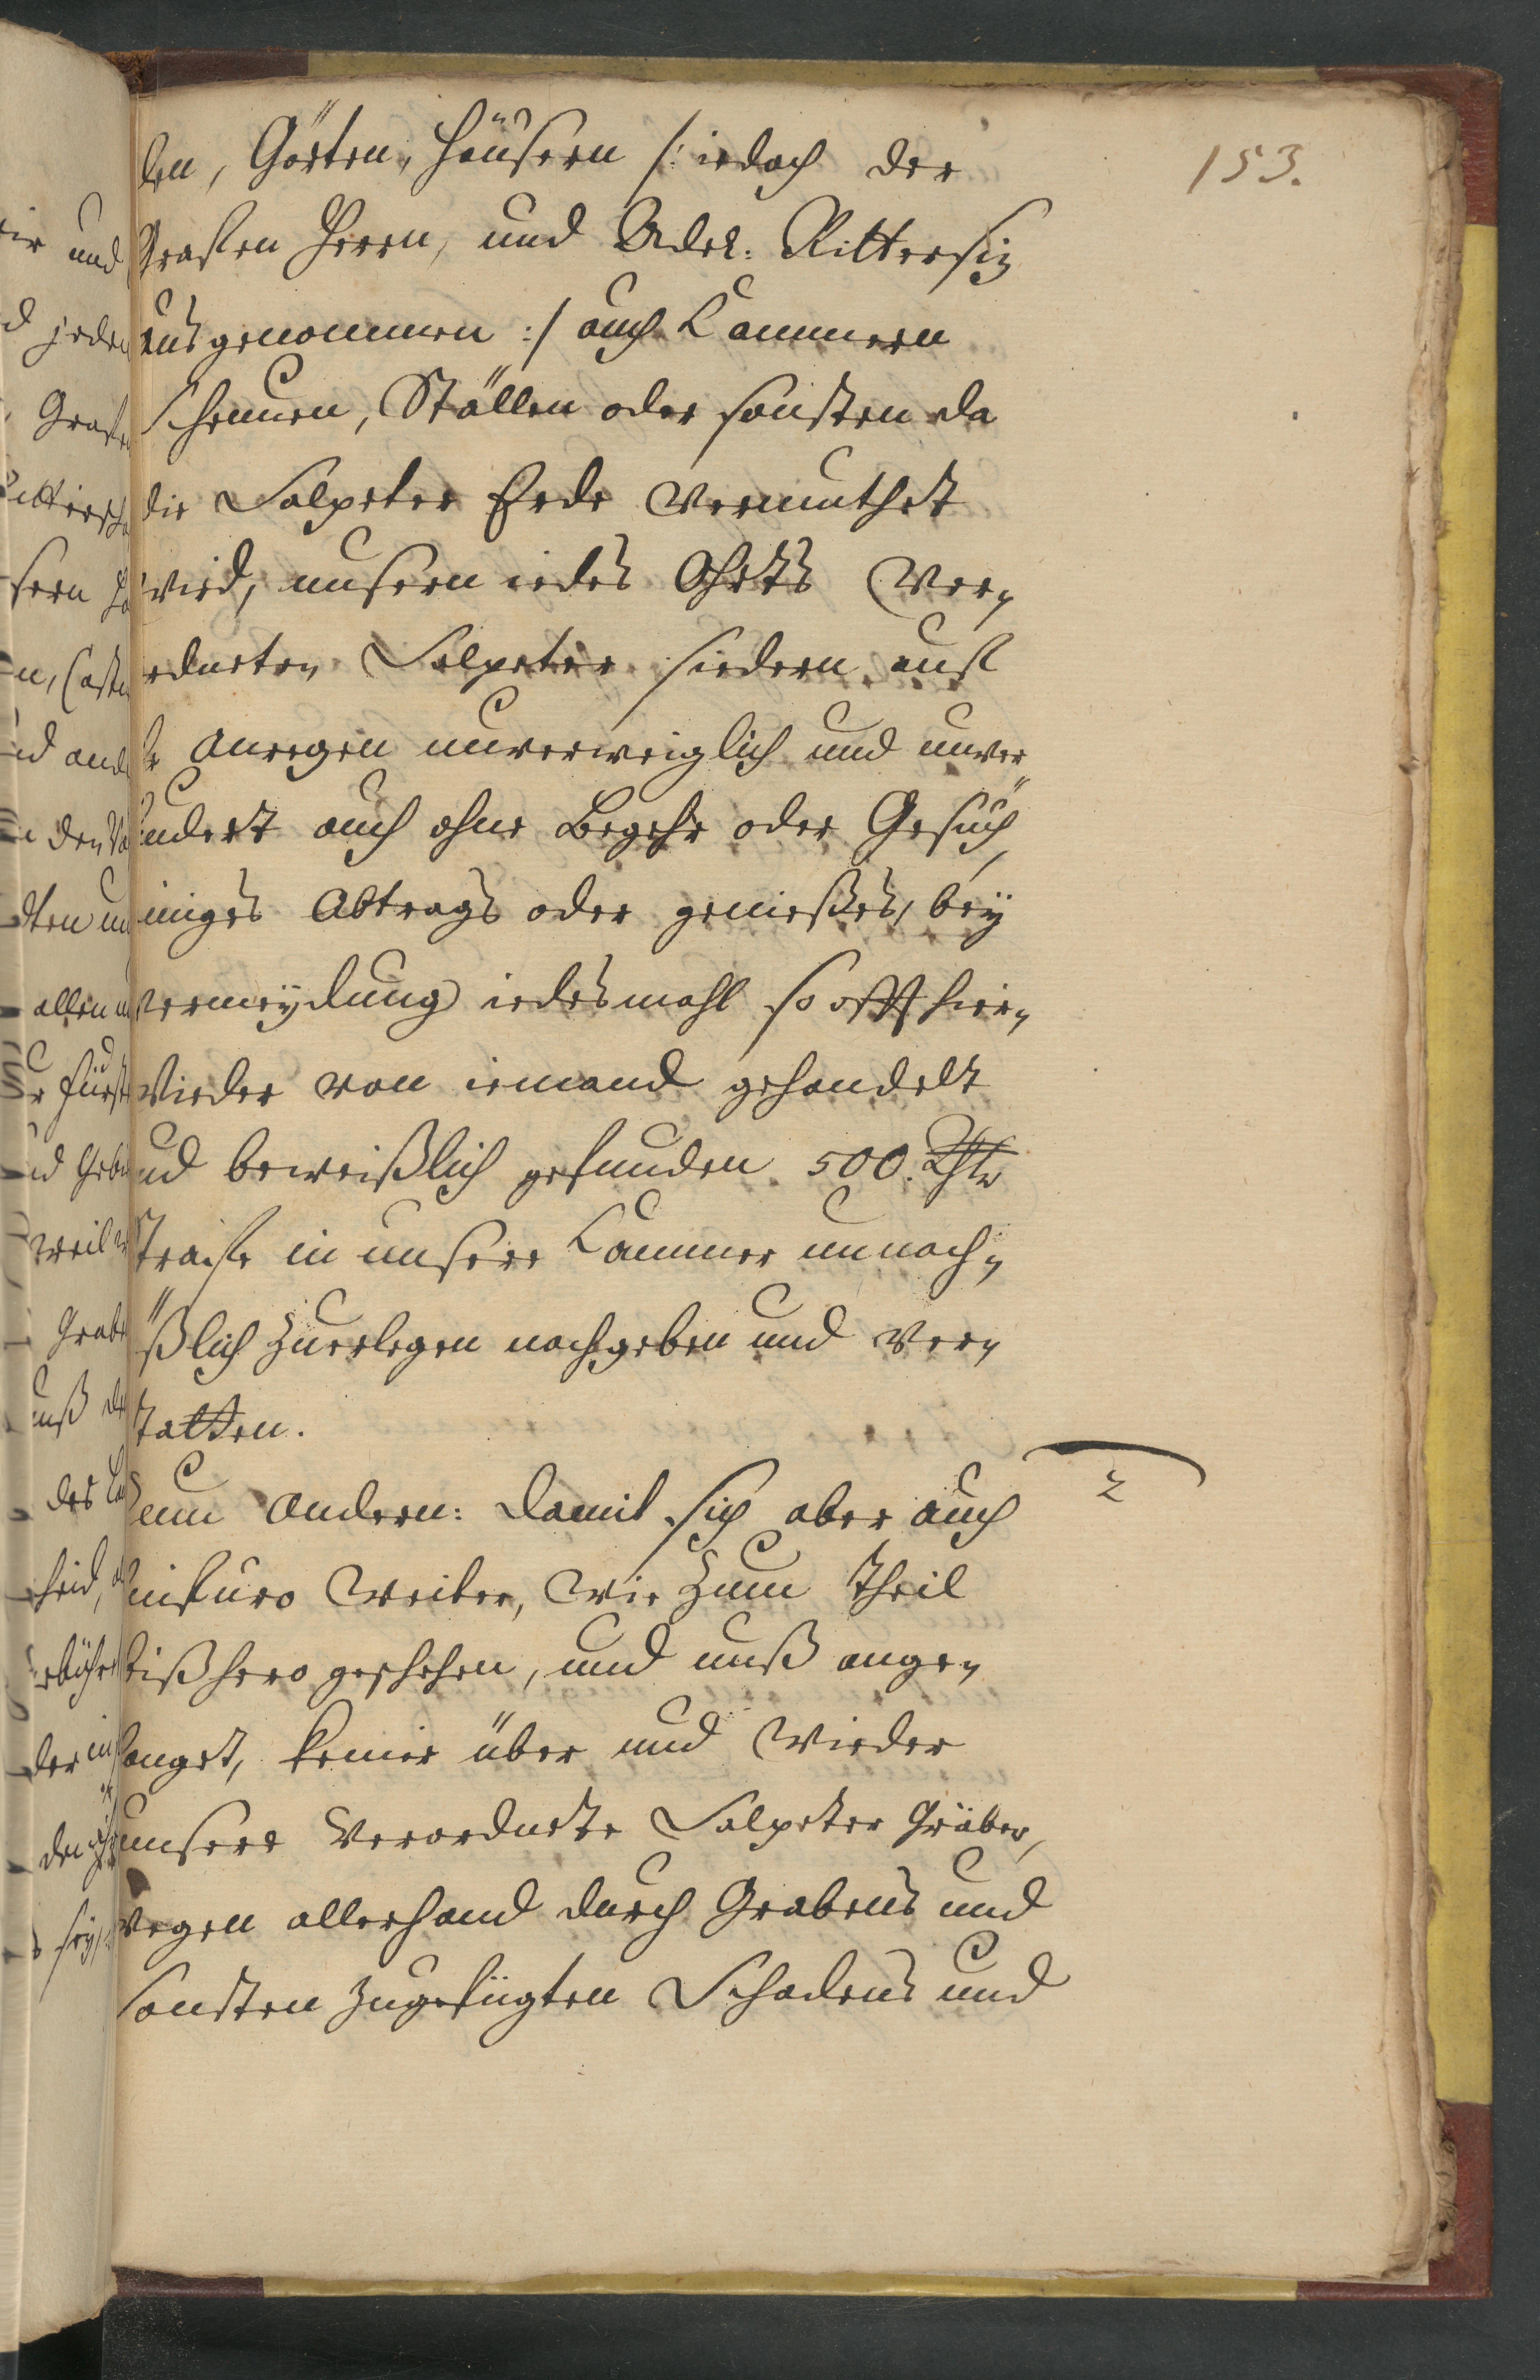 153.
den, Gärten, Häusern /: iedoch der
Graffen Herrn, und Adel: Rittersiz
ausgenommen :/ auch Cammern
Scheuuen, Ställen oder sonsten da
die Salpeter Erde vermuthet
wird, unsern iedes Ohrts Ver„
ordneten Salpeter siedern auf
anregen unverweiglich und unver
ändert auch ohne Begehr oder Gesuch,
einiges Abtrags oder genießes, bey
vermeydung iedesmahl so offt hier„
wieder von iemand gehandelt
und beweißlich gefunden 500. Rthlr
Straffe in unsere Cammer unnach„
äßlich zuerlegen nachgeben und ver„
statten.
2
Zum Andern: damit sich aber auch
infuro weiter, wie zum theil
bißhero geschehen, und unß ange„
langet, keiner über und wieder
unsere Verordnete Salpeter Gräber,
wegen allerhand durch Grabens und
sonsten zugefügten Schadens und